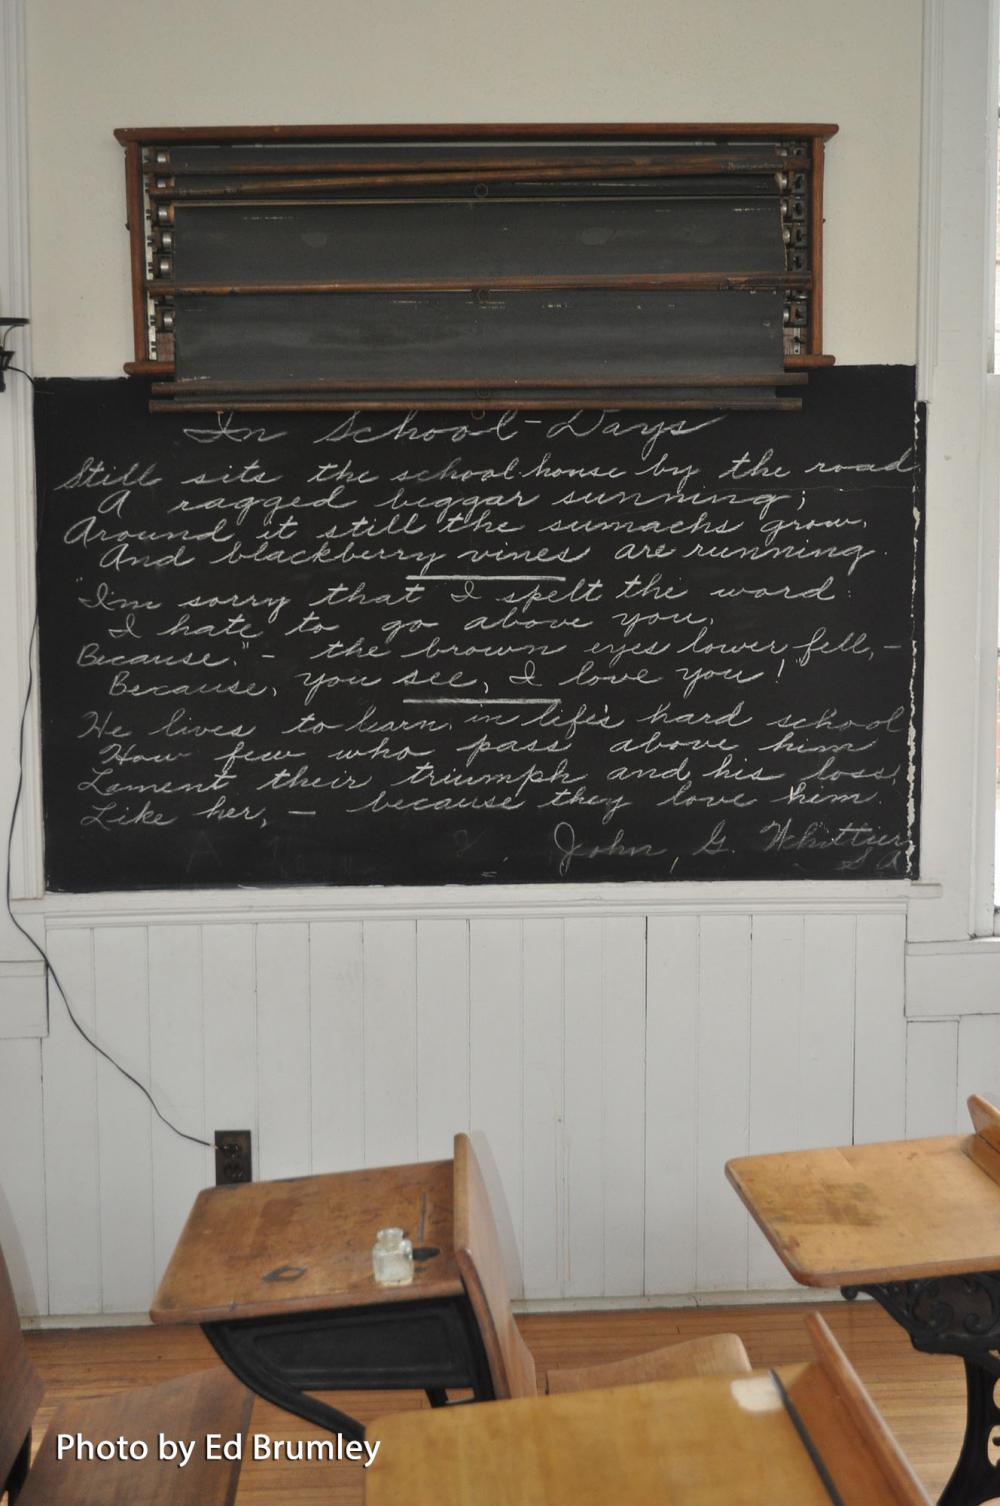 In School-Days
Still sits the schoolhouse by the road
A ragged beggar sunning;
Around it still the sumachs grow,
And blackberry vines are running.
"I'm sorry that I spelt the word:
I hate to go above you,
Because," - the brown eyes lower fell, -
Because, you see, I love you!"
He lives to learn, in life's hard school
How few who pass above him
Lament their triumph and his loss,
Like her, - because they love him.
John G. Whittier
S A
Photo by Ed Brumley